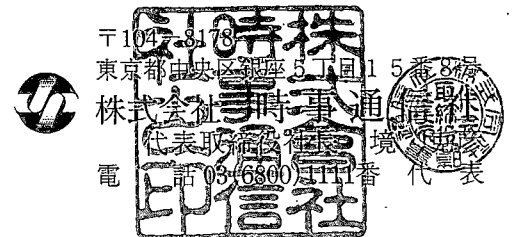 〒104-8178
東京都中央区銀座5丁目15番8号
株式会社 時事通信社
代表取締役社長 境
電 話 03-6800-1111番 代 表
株式会社時事通信社印